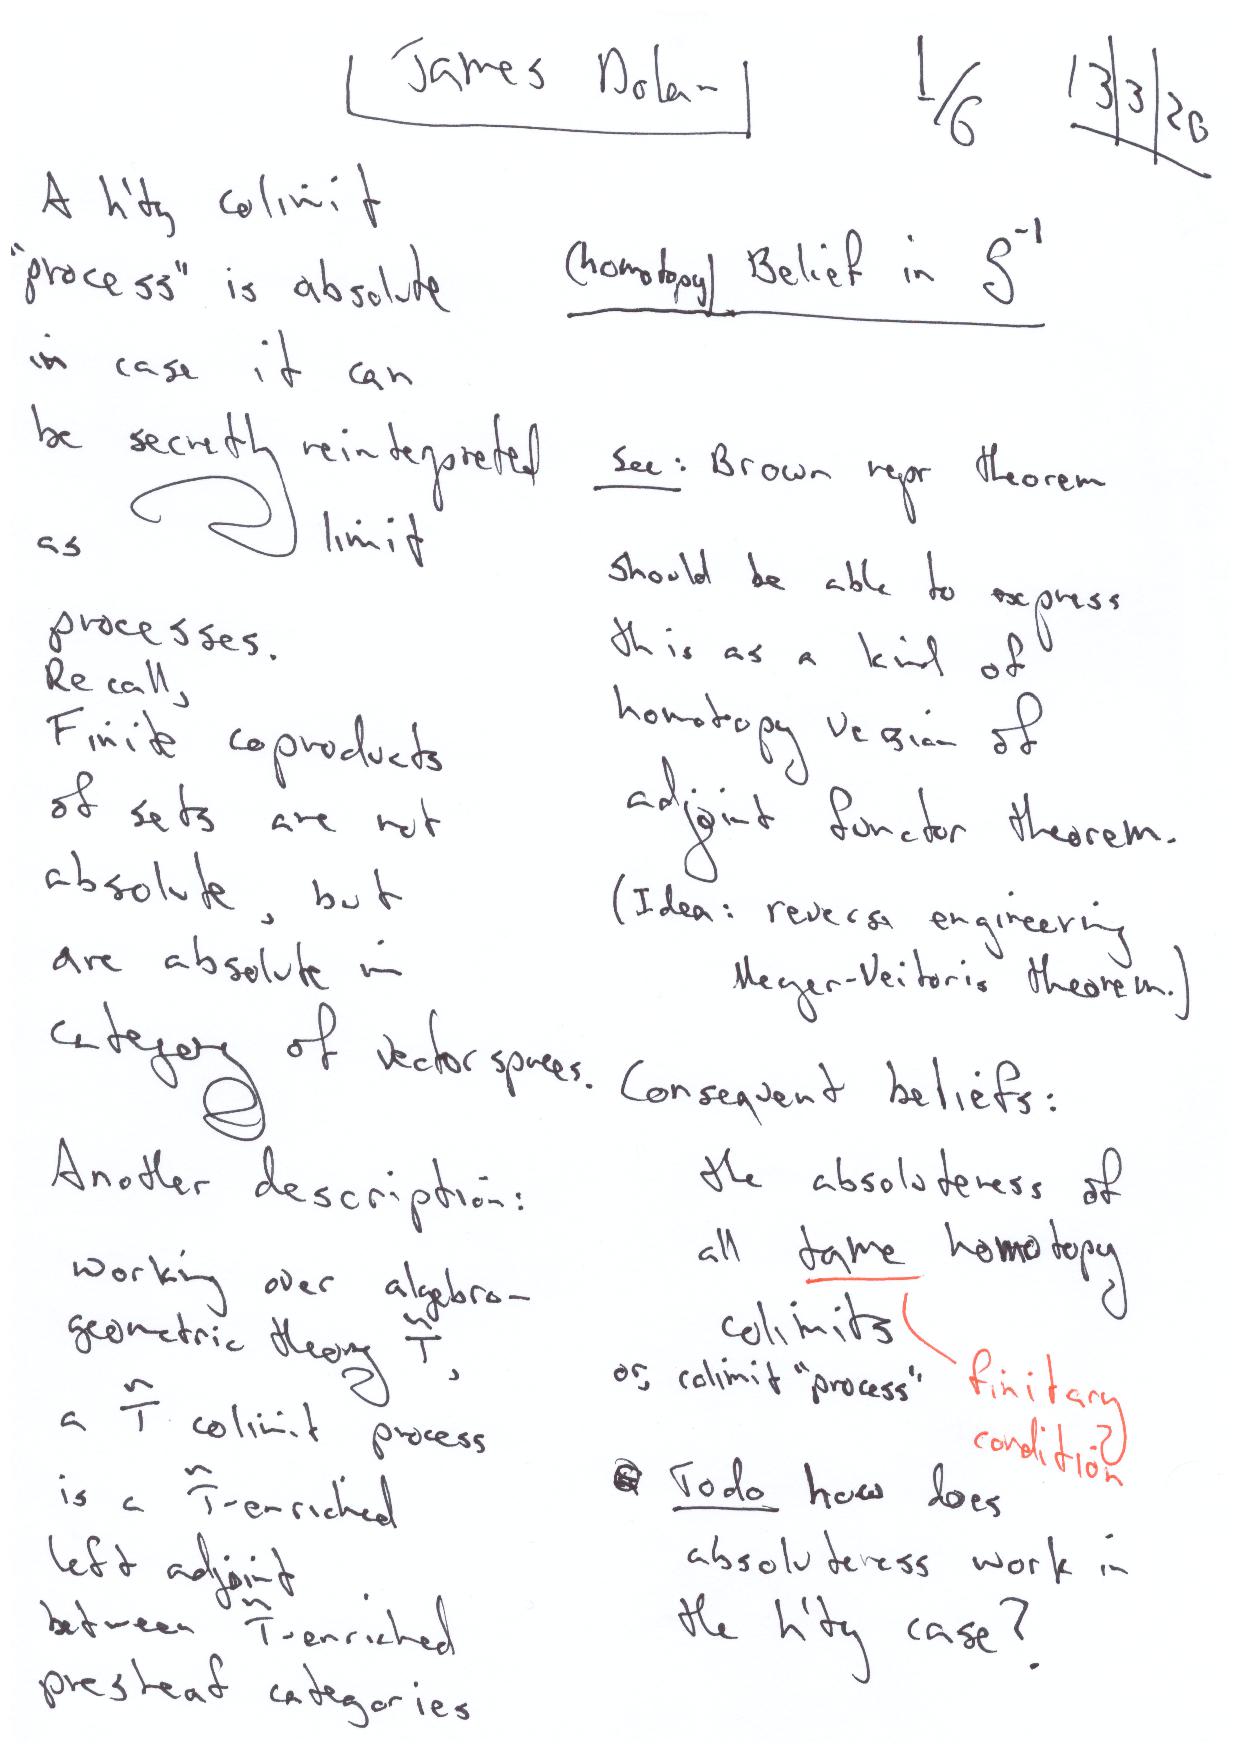 James Dolan
1/6
13/3/20
A h'ty colimit
"process" is absolute
in case it can
be secretly reinterpreted
as limit
processes.
Recall,
Finite coproducts
of sets are not
absolute, but
are absolute in
category of vector spaces.
Another description:
working over algebro-
geometric theory T̃,
a T̃ colimit process
is a T̃-enriched
left adjoint
between T̃-enriched
presheaf categories
(homotopy) Belief in S⁻¹
See: Brown repr theorem
should be able to express
this as a kind of
homotopy version of
adjoint functor theorem.
(Idea: reverse engineering
Meyer-Veitoris theorem.)
Consequent beliefs:
the absoluteness of
all tame homotopy
colimits
or, colimit "process"
finitary
condition?
Todo how does
absoluteness work in
the h'ty case?